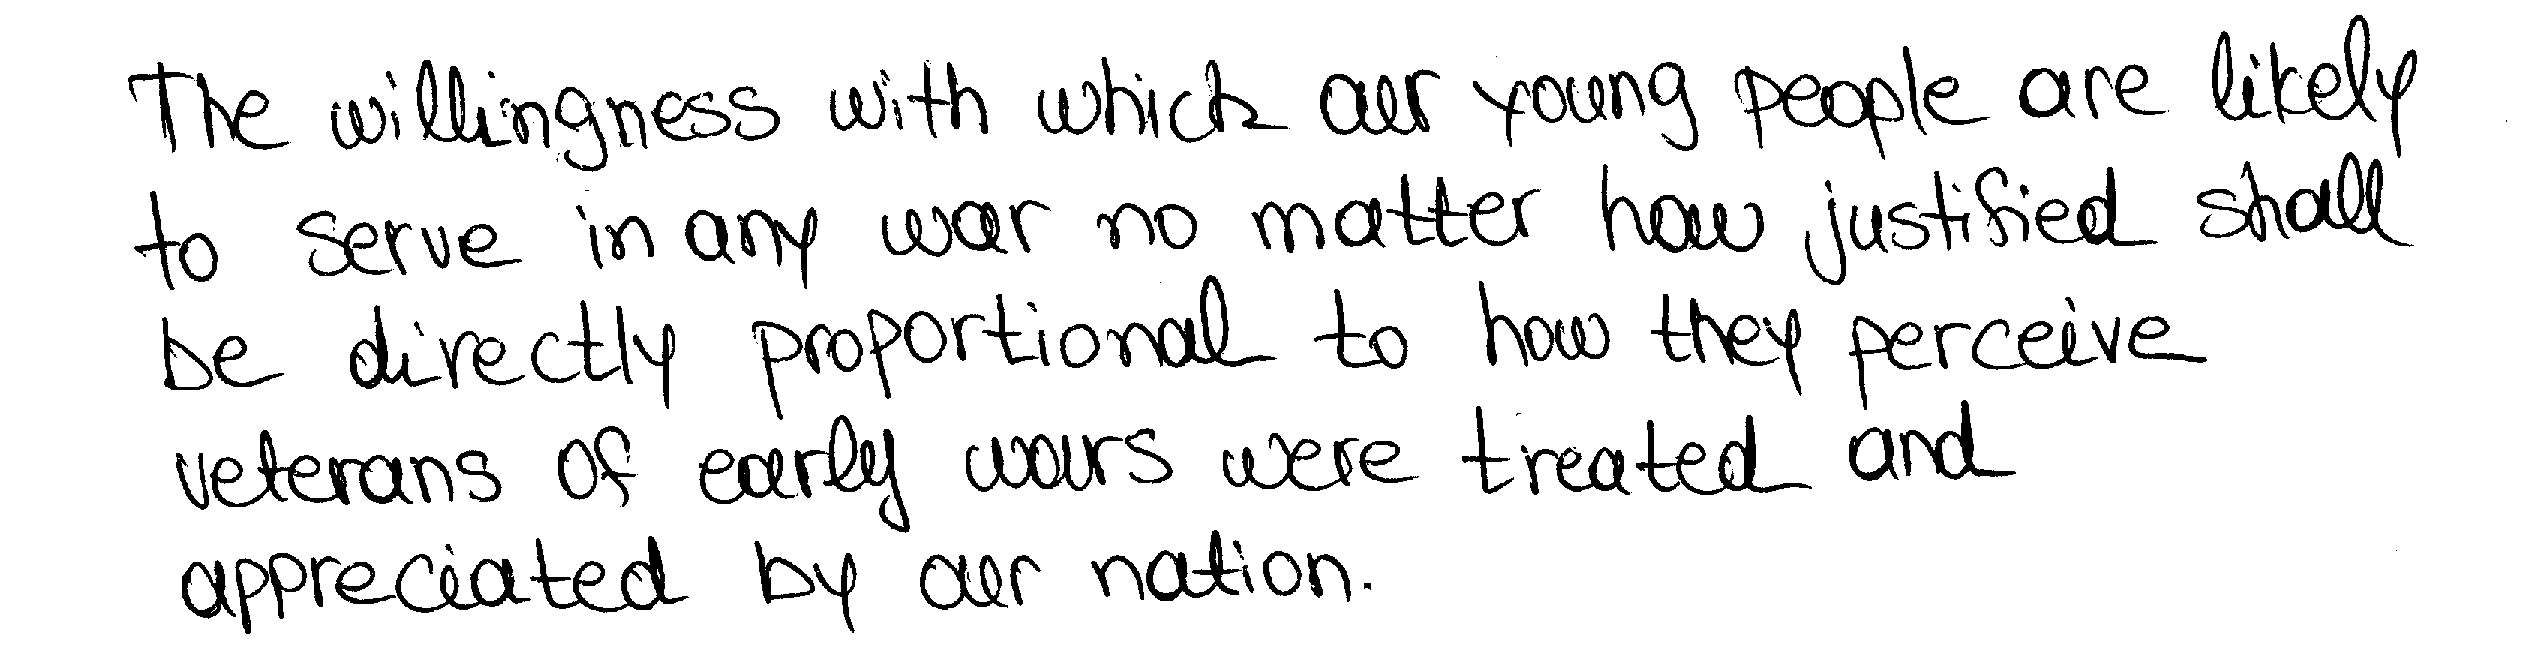 The willingness with which our young people are likely
to serve in any war no matter how justified shall
be directly proportional to how they perceive
veterans of early wars were treated and
appreciated by our nation.